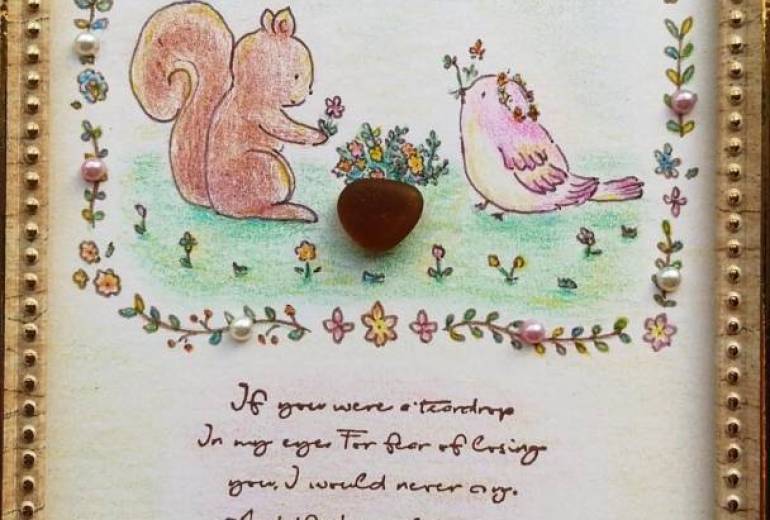 If you were a teardrop
In my eye. For fear of losing
you, I would never cry.